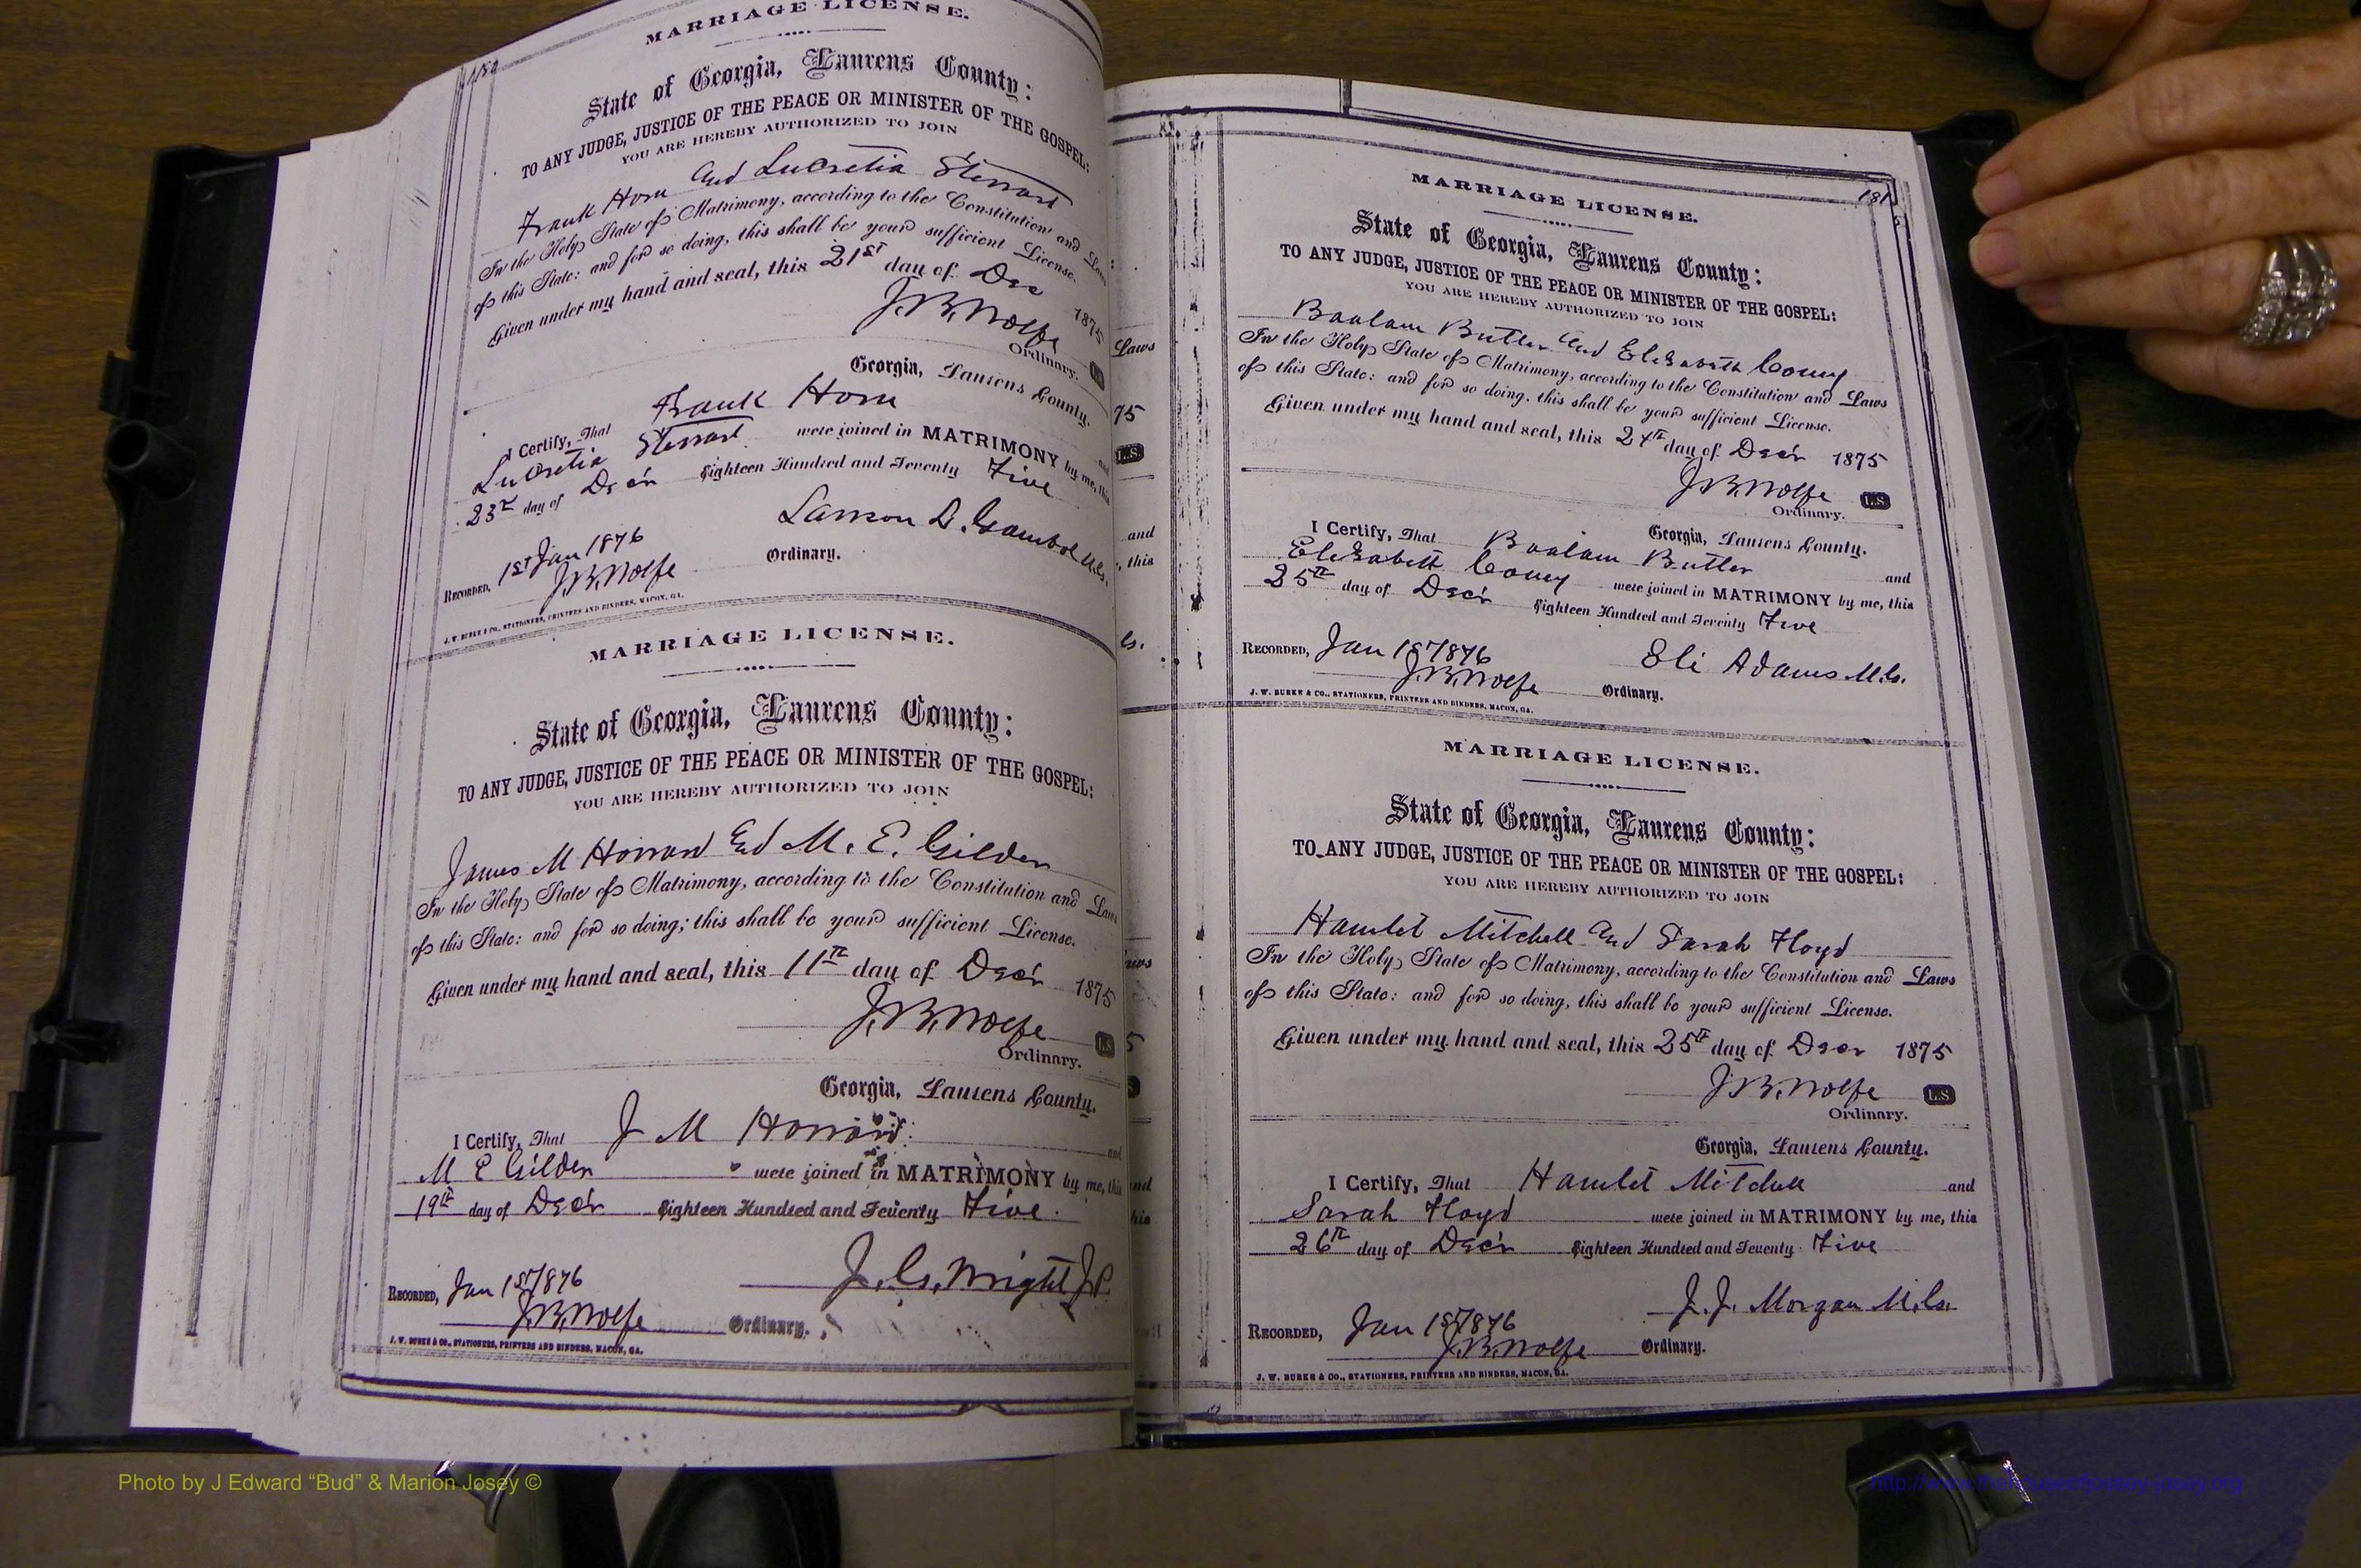 180
MARRIAGE LICENSE.
State of Georgia, Laurens County:
TO ANY JUDGE, JUSTICE OF THE PEACE OR MINISTER OF THE GOSPEL:
YOU ARE HEREBY AUTHORIZED TO JOIN
Frank Horn and Lucretia Stewart
In the Holy State of Matrimony, according to the Constitution and Laws
of this State: and for so doing, this shall be your sufficient License.
Given under my hand and seal, this 21st day of Dec 1875
J.B. Wolfe
Ordinary.
Georgia, Laurens County.
I Certify, That Frank Horn and
Lucretia Stewart were joined in MATRIMONY by me, this
23rd day of Decr Eighteen Hundred and Seventy Five
D.
RECORDED, 1st Jan 1876
J.B. Wolfe Ordinary.
J. W. BURKE & CO., STATIONERS, PRINTERS AND BINDERS, MACON, GA.
MARRIAGE LICENSE.
State of Georgia, Laurens County:
TO ANY JUDGE, JUSTICE OF THE PEACE OR MINISTER OF THE GOSPEL:
YOU ARE HEREBY AUTHORIZED TO JOIN
James M Howard and M. E. Gilder
In the Holy State of Matrimony, according to the Constitution and Laws
of this State: and for so doing; this shall be your sufficient License.
Given under my hand and seal, this 11th day of Decr 1875
J.B. Wolfe L.S.
Ordinary.
Georgia, Laurens County.
I Certify, That J M Howard and
M E Gilder were joined in MATRIMONY by me, this
19th day of Decr Eighteen Hundred and Seventy Five.
J. G. Wright J.P.
RECORDED, Jan 1st 1876
J.B. Wolfe Ordinary.
J. W. BURKE & CO., STATIONERS, PRINTERS AND BINDERS, MACON, GA.
Laws
75
L.S.
and
, this
181
MARRIAGE LICENSE.
State of Georgia, Laurens County:
TO ANY JUDGE, JUSTICE OF THE PEACE OR MINISTER OF THE GOSPEL:
YOU ARE HEREBY AUTHORIZED TO JOIN
Baalam Butler and Elizabeth Coney
In the Holy State of Matrimony, according to the Constitution and Laws
of this State: and for so doing, this shall be your sufficient License.
Given under my hand and seal, this 24th day of Decr 1875
J.B. Wolfe L.S.
Ordinary.
Georgia, Laurens County.
I Certify, That Baalam Butler and
Elizabeth Coney were joined in MATRIMONY by me, this
25th day of Decr Eighteen Hundred and Seventy Five
Eli Adams M.G.
RECORDED, Jan 1st 1876
J.B. Wolfe Ordinary.
J. W. BURKE & CO., STATIONERS, PRINTERS AND BINDERS, MACON, GA.
MARRIAGE LICENSE.
State of Georgia, Laurens County:
TO ANY JUDGE, JUSTICE OF THE PEACE OR MINISTER OF THE GOSPEL:
YOU ARE HEREBY AUTHORIZED TO JOIN
Hamlet Mitchell and Sarah Floyd
In the Holy State of Matrimony, according to the Constitution and Laws
of this State: and for so doing, this shall be your sufficient License.
Given under my hand and seal, this 25th day of Decr 1875
J.B. Wolfe L.S.
Ordinary.
Georgia, Laurens County.
I Certify, That Hamlet Mitchell and
Sarah Floyd were joined in MATRIMONY by me, this
26th day of Decr Eighteen Hundred and Seventy Five
J. J. Morgan M.G.
RECORDED, Jan 1st 1876
J.B. Wolfe Ordinary.
J. W. BURKE & CO., STATIONERS, PRINTERS AND BINDERS, MACON, GA.
Photo by J Edward “Bud” & Marion Josey ©